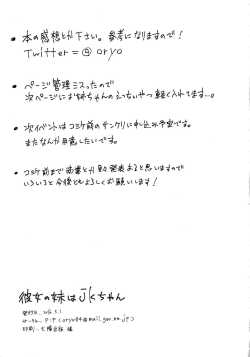 • 本の感想とか下さい。参考になりますので!
Twitter = @ oryo
• ページ管理ミスったので
次ページにお姉ちゃんのえっちいやつ軽く入れてます…。
• 次イベントはコミケ前のサンクリに申し込み予定です。
またなんか用意したいです。
• コミケ前まで 発表あると思いますので
いろいろと今後ともよろしくお願いします!
彼女の妹はjkちゃん
発行日
印刷